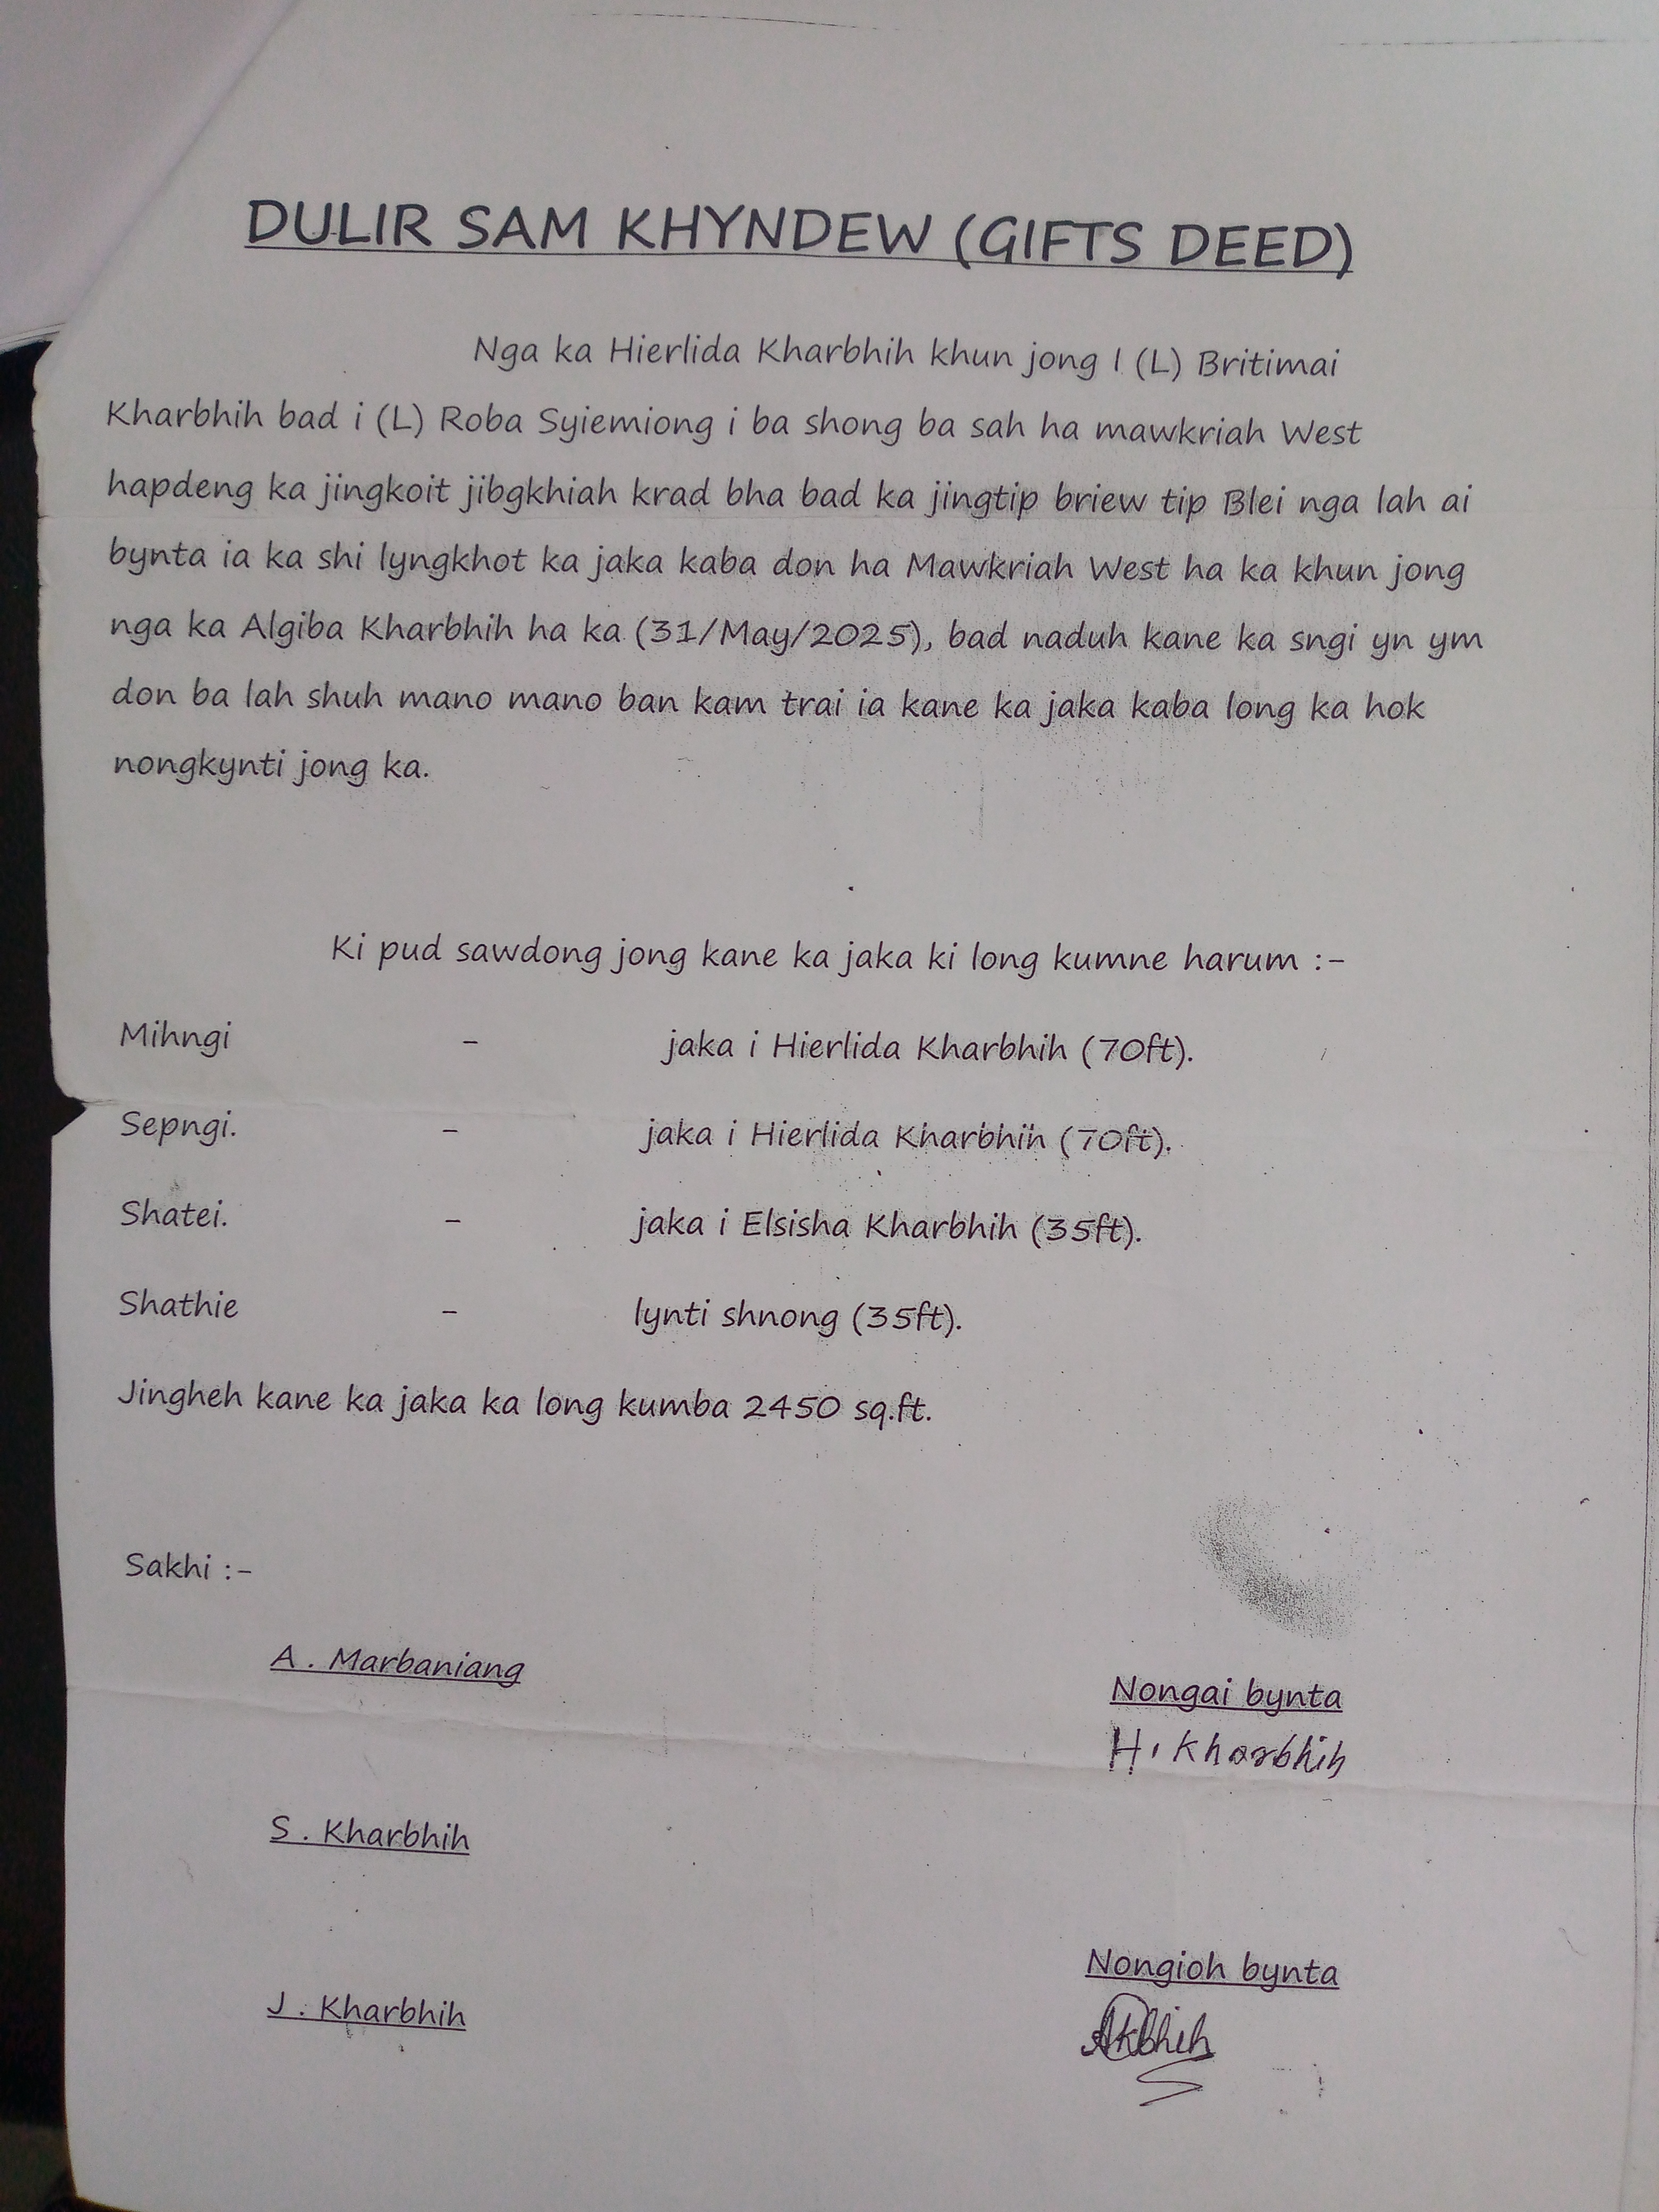 DULIR SAM KHYNDEW (GIFTS DEED)
Nga ka Hierlida Kharbhih khun jong I (L) Britimai
Kharbhih bad i (L) Roba Syiemiong i ba shong ba sah ha mawkriah West
hapdeng ka jingkoit jibgkhiah krad bha bad ka jingtip briew tip Blei nga lah ai
bynta ia ka shi lyngkhot ka jaka kaba don ha Mawkriah West ha ka khun jong
nga ka Algiba Kharbhih ha ka (31/May/2025), bad naduh kane ka sngi yn ym
don ba lah shuh mano mano ban kam trai ia kane ka jaka kaba long ka hok
nongkynti jong ka.
Ki pud sawdong jong kane ka jaka ki long kumne harum :-
Mihngi - jaka i Hierlida Kharbhih (70ft).
Sepngi. - jaka i Hierlida Kharbhih (70ft).
Shatei. - jaka i Elsisha Kharbhih (35ft).
Shathie - lynti shnong (35ft).
Jingheh kane ka jaka ka long kumba 2450 sq.ft.
Sakhi :-
A . Marbaniang
Nongai bynta
H. Kharbhih
S . Kharbhih
Nongioh bynta
J . Kharbhih